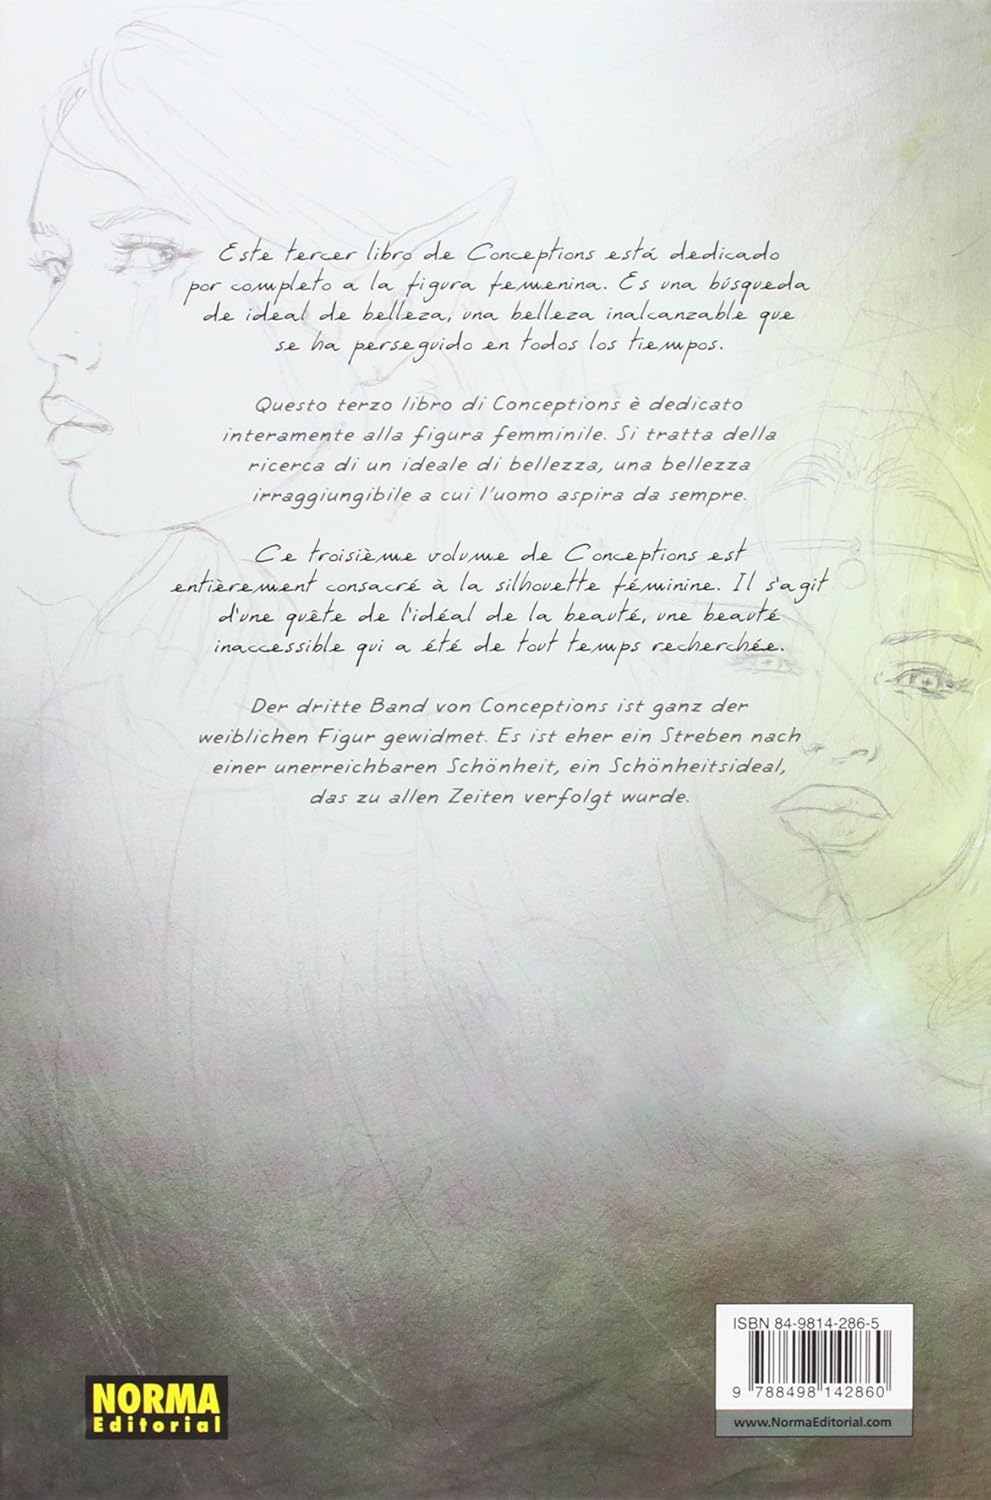 Este tercer libro de Conceptions está dedicado
por completo a la figura femenina. Es una búsqueda
de ideal de belleza, una belleza inalcanzable que
se ha perseguido en todos los tiempos.
Questo terzo libro di Conceptions è dedicato
interamente alla figura femminile. Si tratta della
ricerca di un ideale di bellezza, una bellezza
irraggiungibile a cui l'uomo aspira da sempre.
Ce troisième volume de Conceptions est
entièrement consacré à la silhouette féminine. Il s'agit
d'une quête de l'idéal de la beauté, une beauté
inaccessible qui a été de tout temps recherchée.
Der dritte Band von Conceptions ist ganz der
weiblichen Figur gewidmet. Es ist eher ein Streben nach
einer unerreichbaren Schönheit, ein Schönheitsideal,
das zu allen Zeiten verfolgt wurde.
NORMA
Editorial
ISBN 84-9814-286-5
9 788498 142860
www.NormaEditorial.com